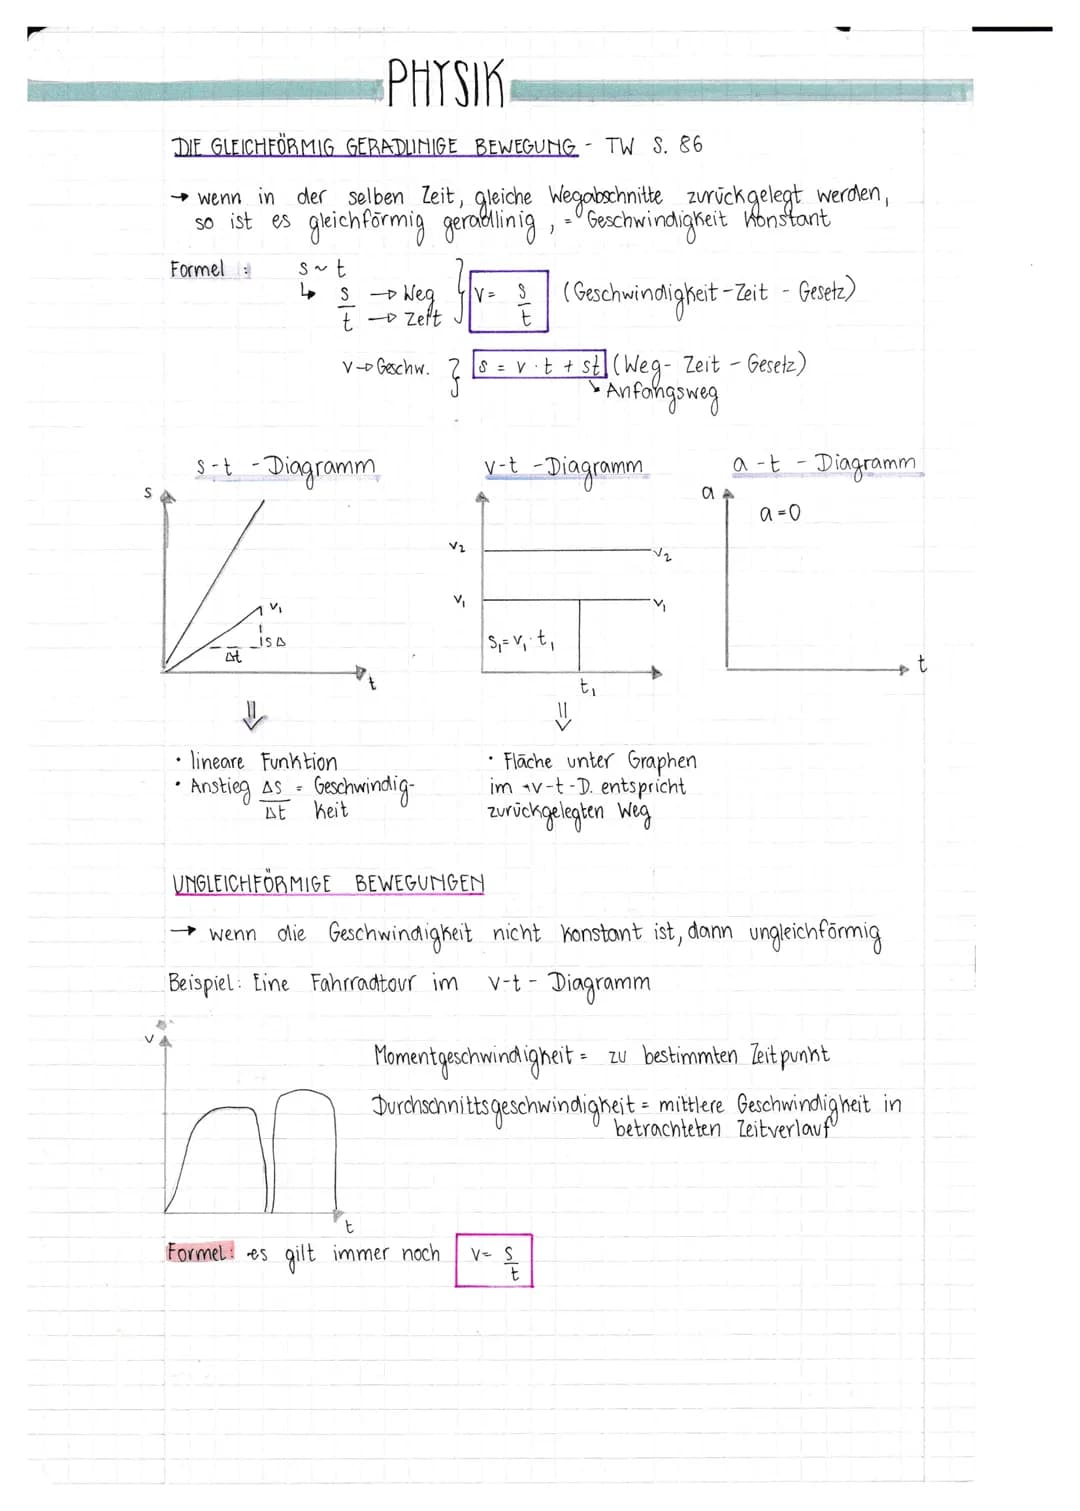 PHYSIK
DIE GLEICHFÖRMIG GERADLINIGE BEWEGUNG - TW S. 86
→ wenn in der selben Zeit, gleiche Wegabschnitte zurückgelegt werden,
so ist es gleichförmig geradlinig, = Geschwindigkeit konstant
Formel :
s ~ t
↳ s/t → Weg → Zeit } v = s/t (Geschwindigkeit-Zeit - Gesetz)
v → Geschw. } s = v · t + st (Weg - Zeit - Gesetz)
↘ Anfangsweg
s-t - Diagramm
v-t - Diagramm
a-t - Diagramm
s
v₁
Δt
sΔ
t
v₂
v₂
v₁
v₁
s₁ = v₁ · t₁
t₁
a
a = 0
t
⇓
⇓
• lineare Funktion
• Anstieg Δs/Δt = Geschwindig-
keit
• Fläche unter Graphen
im v-t-D. entspricht
zurückgelegten Weg
UNGLEICHFÖRMIGE BEWEGUNGEN
→ wenn die Geschwindigkeit nicht konstant ist, dann ungleichförmig
Beispiel: Eine Fahrradtour im v-t - Diagramm
v
t
Momentgeschwindigkeit = zu bestimmten Zeitpunkt
Durchschnittsgeschwindigkeit = mittlere Geschwindigkeit in
betrachteten Zeitverlauf
Formel: es gilt immer noch v = s/t